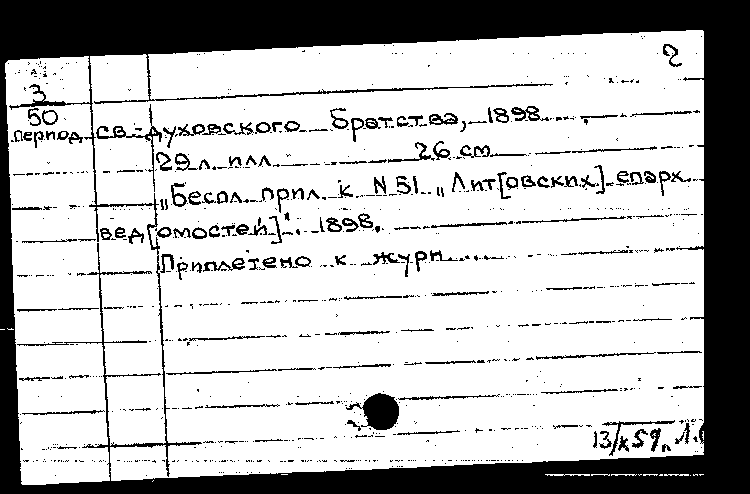 2
3
50
период св.-духовского Братства, 1898
29 л. илл. 26 см
„Беспл. прил. к N 51 „Лит[овских] епарх
вед[омостей]". 1898.
Приплетено к журн....
13/X 59